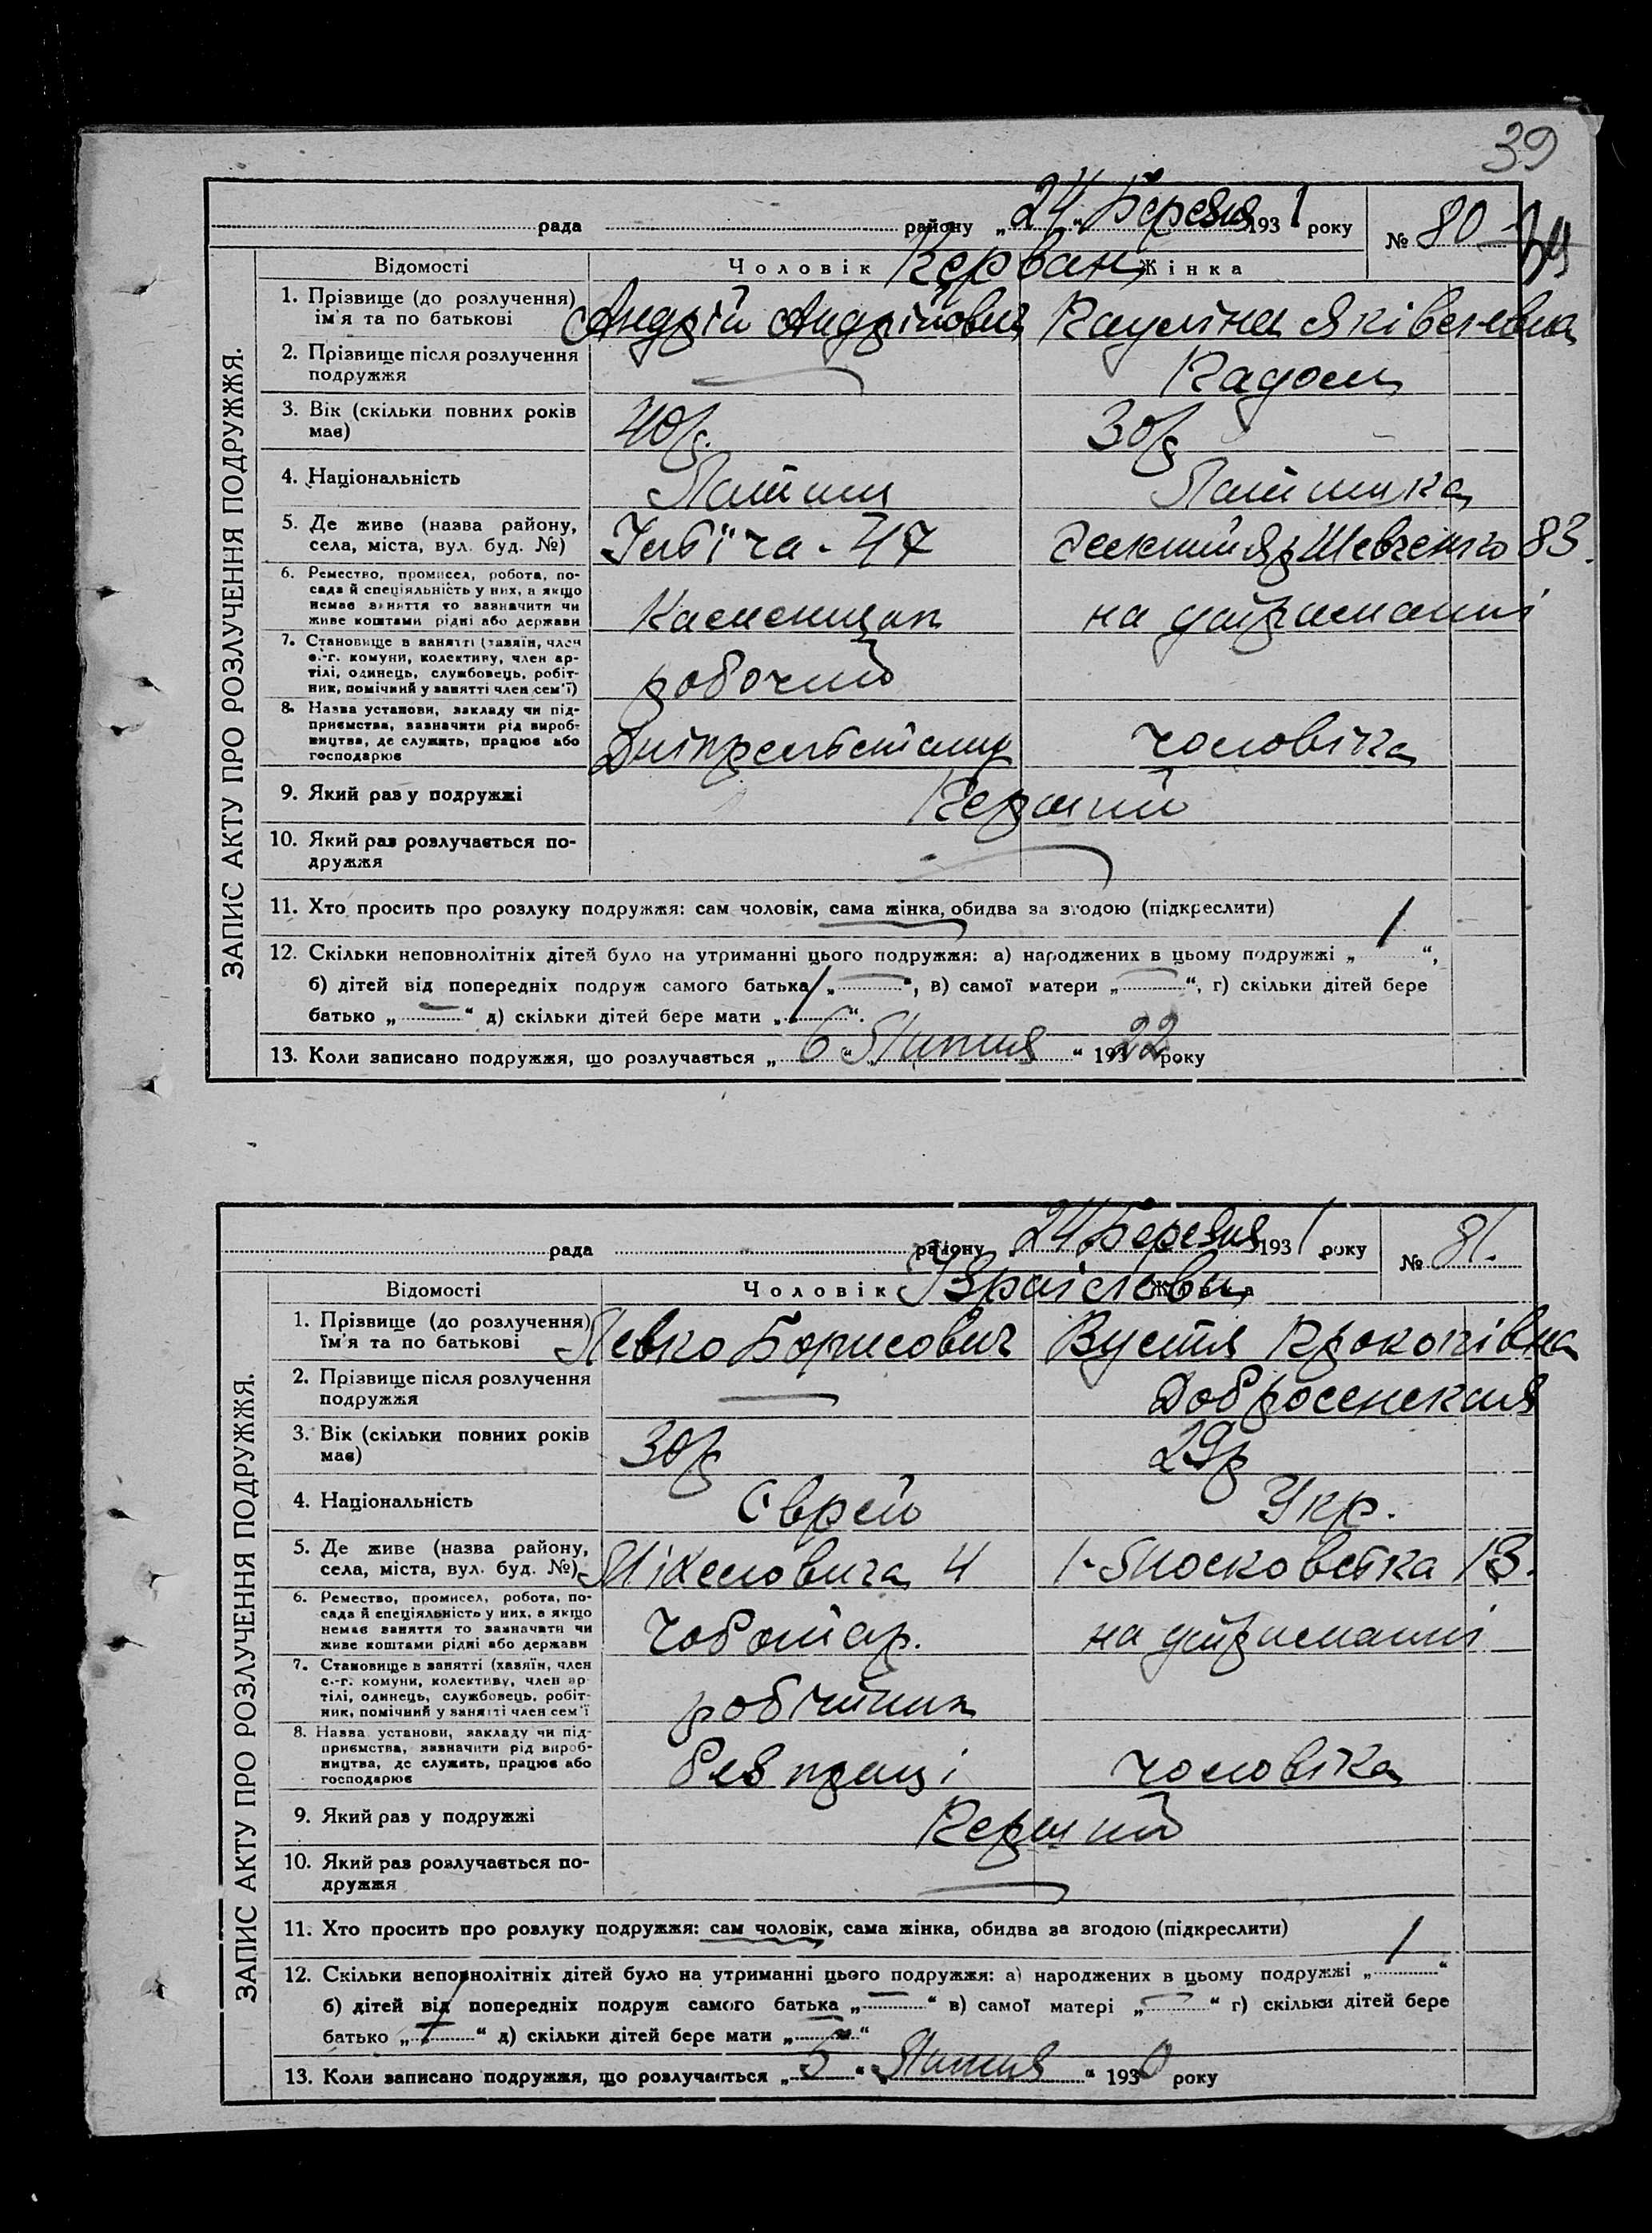 39
рада району „24“ Березня 1931 року № 80
Відомості Чоловік Жінка
ЗАПИС АКТУ ПРО РОЗЛУЧЕННЯ ПОДРУЖЖЯ.
1. Прізвище (до розлучення) ім'я та по батькові
Андрій Андрійович
2. Прізвище після розлучення подружжя
3. Вік (скільки повних років має) 40р. 30р
4. Національність
5. Де живе (назва району, села, міста, вул. буд. №) 47 Шевченко 83.
6. Ремество, промисел, робота, посада й спеціяльність у них, а якщо немає заняття то зазначити чи живе коштами рідні або держави
Каменщик на утриманні
7. Становище в занятті (хазяїн, член с.-г. комуни, колективу, член артілі, одинець, службовець, робітник, помічний у занятті член сем'ї)
робочий
8. Назва установи, закладу чи підприємства, зазначити рід виробництва, де служить, працює або господарює
чоловіка
9. Який раз у подружжі Перший
10. Який раз розлучається подружжя
11. Хто просить про розлуку подружжя: сам чоловік, сама жінка, обидва за згодою (підкреслити)
12. Скільки неповнолітніх дітей було на утриманні цього подружжя: а) народжених в цьому подружжі „1“,
б) дітей від попередніх подруж самого батька „—“, в) самої матери „—“, г) скільки дітей бере
батько „—“ д) скільки дітей бере мати „1“.
13. Коли записано подружжя, що розлучається „6“ Липня “ 1922 року
рада району 24 Березня 1931 року № 81.
Відомості Чоловік Жінка
ЗАПИС АКТУ ПРО РОЗЛУЧЕННЯ ПОДРУЖЖЯ.
1. Прізвище (до розлучення) ім'я та по батькові
Левко Борисович Вустя
2. Прізвище після розлучення подружжя
3. Вік (скільки повних років має) 30р 29р
4. Національність Єврей Укр.
5. Де живе (назва району, села, міста, вул. буд. №) 4 Московська 13.
6. Ремество, промисел, робота, посада й спеціяльність у них, а якщо немає заняття то зазначати чи живе коштами рідні або держави
Чоботар. на утриманні
7. Становище в занятті (хазяїн, член с.-г. комуни, колективу, член артілі, одинець, службовець, робітник, помічний у занятті член сем'ї
робітник
8. Назва установи, закладу чи підприємства, зазначити рід виробництва, де служить, працює або господарює
чоловіка
9. Який раз у подружжі Перший
10. Який раз розлучається подружжя
11. Хто просить про розлуку подружжя: сам чоловік, сама жінка, обидва за згодою (підкреслити)
12. Скільки неповнолітніх дітей було на утриманні цього подружжя: а) народжених в цьому подружжі „1“
б) дітей від попередніх подруж самого батька „—“ в) самої матері „—“ г) скільки дітей бере
батько „1“ д) скільки дітей бере мати „—“
13. Коли записано подружжя, що розлучається „5“ Липня “ 1930 року